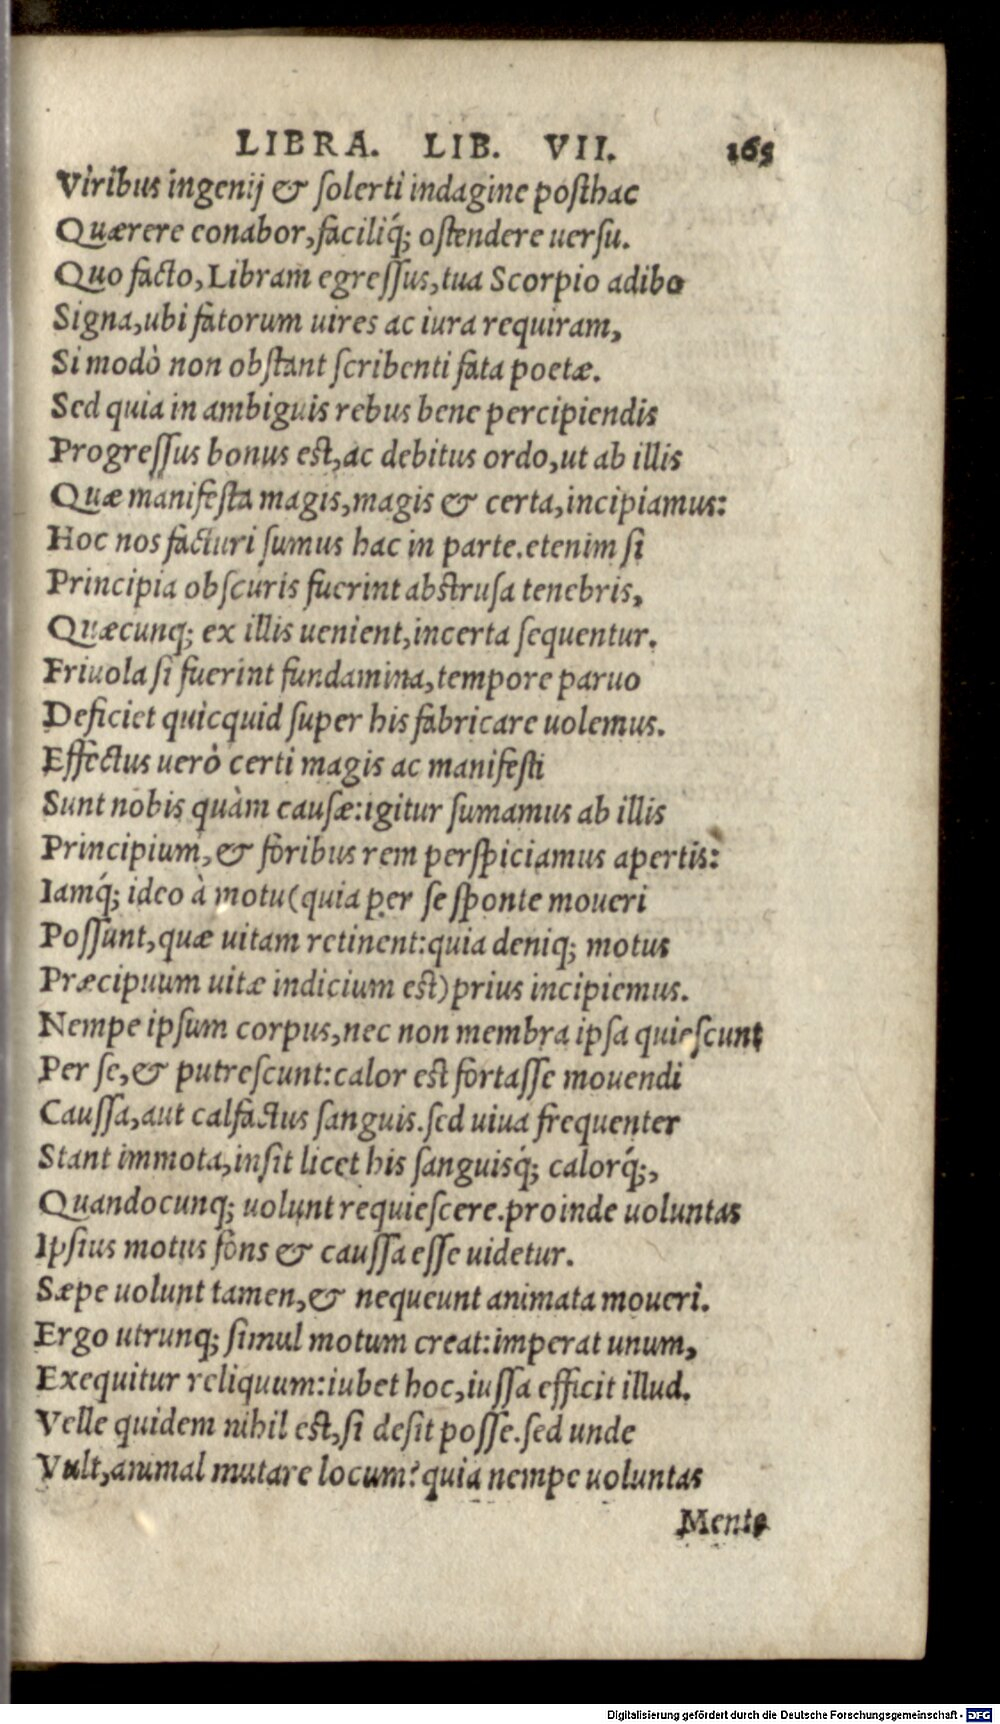 LIBRA. LIB. VII. 165
Viribus ingenij & ſolerti indagine poſthac
Quærere conabor, faciliq́; oſtendere uerſu.
Quo facto, Libram egreſſus, tua Scorpio adibo
Signa, ubi fatorum uires ac iura requiram,
Si modò non obſtant ſcribenti fata poetæ.
Sed quia in ambiguis rebus bene percipiendis
Progreſſus bonus eſt, ac debitus ordo, ut ab illis
Quæ manifeſta magis, magis & certa, incipiamus:
Hoc nos facturi ſumus hac in parte. etenim ſi
Principia obſcuris fuerint abſtruſa tenebris,
Quæcunq; ex illis uenient, incerta ſequentur.
Friuola ſi fuerint fundamina, tempore paruo
Deficiet quicquid ſuper his fabricare uolemus.
Effectus uerò certi magis ac manifeſti
Sunt nobis quàm cauſæ: igitur ſumamus ab illis
Principium, & foribus rem perſpiciamus apertis:
Iamq́; ideo à motu (quia per ſe ſponte moueri
Poſſunt, quæ uitam retinent: quia deniq; motus
Præcipuum uitæ indicium eſt) prius incipiemus.
Nempe ipſum corpus, nec non membra ipſa quieſcunt
Per ſe, & putreſcunt: calor eſt fortaſſe mouendi
Cauſſa, aut calfactus ſanguis. ſed uiua frequenter
Stant immota, inſit licet his ſanguisq́; calorq́;,
Quandocunq; uolunt requieſcere. proinde uoluntas
Ipſius motus fons & cauſſa eſſe uidetur.
Sæpe uolunt tamen, & nequeunt animata moueri.
Ergo utrunq; ſimul motum creat: imperat unum,
Exequitur reliquum: iubet hoc, iuſſa efficit illud.
Velle quidem nihil eſt, ſi deſit poſſe. ſed unde
Vult, animal mutare locum? quia nempe uoluntas
Mente
Digitalisierung gefördert durch die Deutsche Forschungsgemeinschaft - DFG